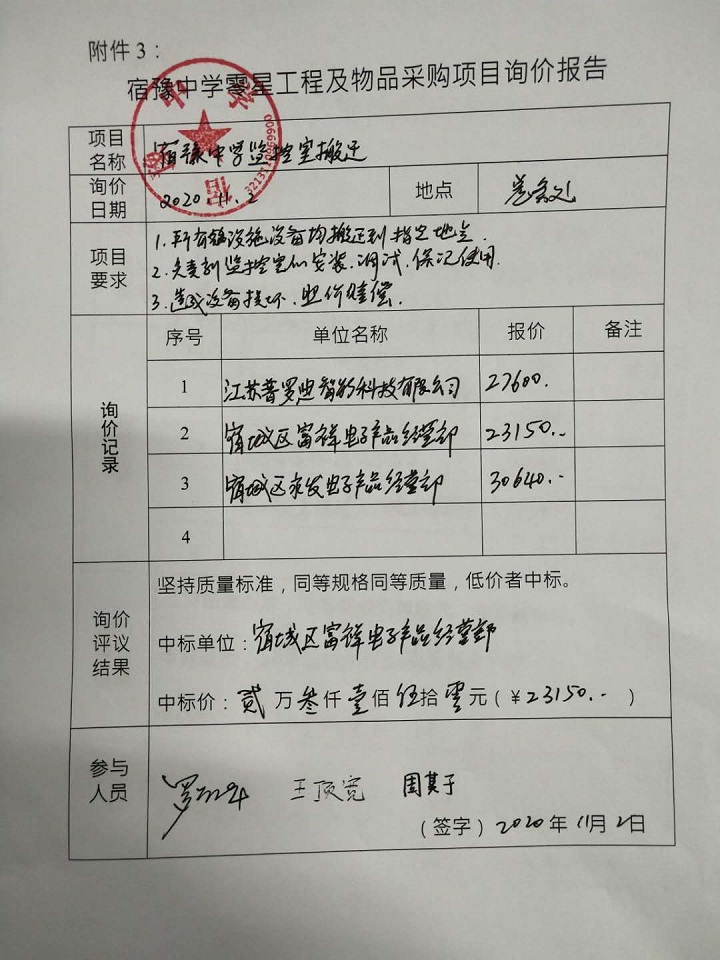 附件3：
宿豫中学零星工程及物品采购项目询价报告
项目名称 宿豫中学监控室搬迁
询价日期 2020.11.2 地点 总务处
项目要求
1.所有设施设备均搬迁到指定地点.
2.负责到监控室的安装.调试.保证使用.
3.造成设备损坏.照价赔偿.
询价记录
序号 单位名称 报价 备注
1 江苏普罗迪智能科技有限公司 27600.
2 宿城区富祥电子产品经营部 23150.--
3 宿城区永发电子产品经营部 30640.--
4
询价评议结果
坚持质量标准，同等规格同等质量，低价者中标。
中标单位：宿城区富祥电子产品经营部
中标价：贰万叁仟壹佰伍拾零元（¥23150.--）
参与人员
王顶宽 周其于
（签字）2020年11月2日